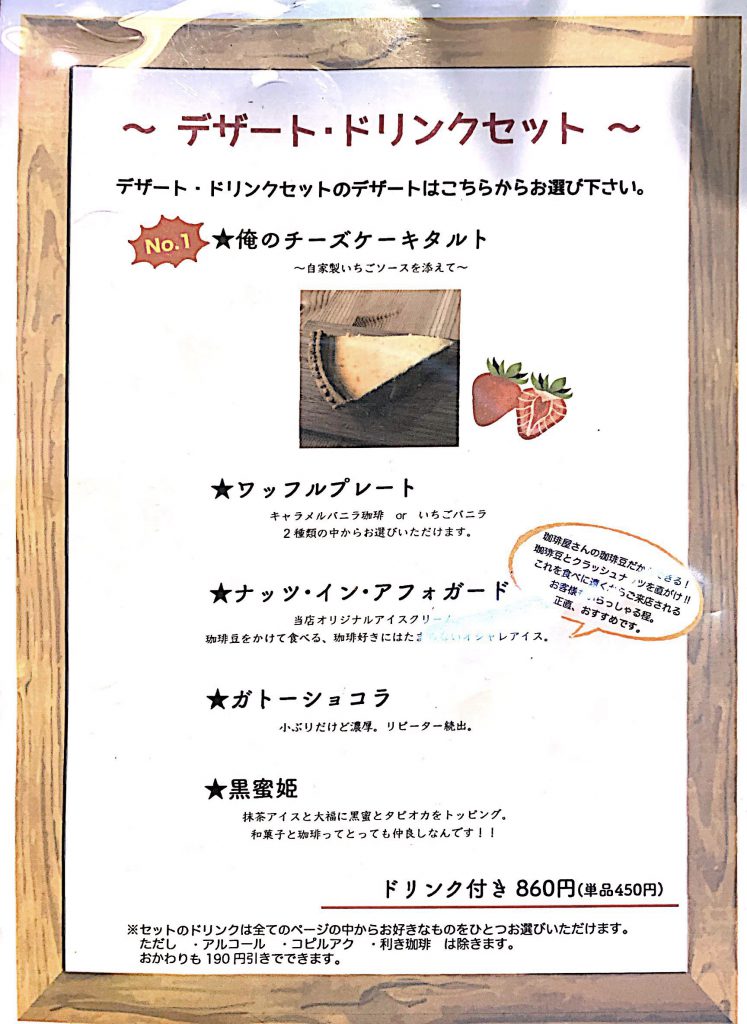 ～ デザート・ドリンクセット ～
デザート・ドリンクセットのデザートはこちらからお選び下さい。
No.1
★俺のチーズケーキタルト
～自家製いちごソースを添えて～
★ワッフルプレート
キャラメルバニラ珈琲 or いちごバニラ
２種類の中からお選びいただけます。
★ナッツ・イン・アフォガード
当店オリジナルアイスクリー
珈琲豆をかけて食べる、珈琲好きにはたまらないオシャレアイス。
珈琲屋さんの珈琲豆だか できる！
珈琲豆とクラッシュナッツを直がけ!!
これを食べに遠くからご来店される
お客様もいらっしゃる程。
正直、おすすめです。
★ガトーショコラ
小ぶりだけど濃厚。リピーター続出。
★黒蜜姫
抹茶アイスと大福に黒蜜とタピオカをトッピング。
和菓子と珈琲ってとっても仲良しなんです！！
ドリンク付き 860円(単品450円)
※セットのドリンクは全てのページの中からお好きなものをひとつお選びいただけます。
ただし ・アルコール ・コピルアク ・利き珈琲 は除きます。
おかわりも 190 円引きでできます。